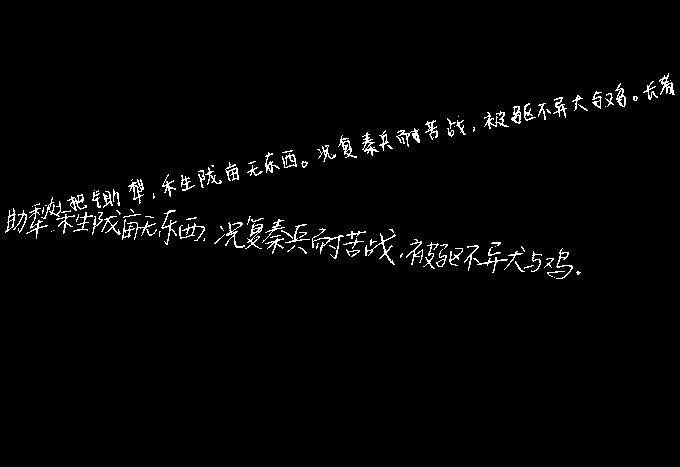 把锄犁,禾生陇亩无东西。况复秦兵耐苦战,被驱不异犬与鸡。长者
助犁.禾生陇亩无东西.况复秦兵耐苦战,被驱不异犬与鸡.